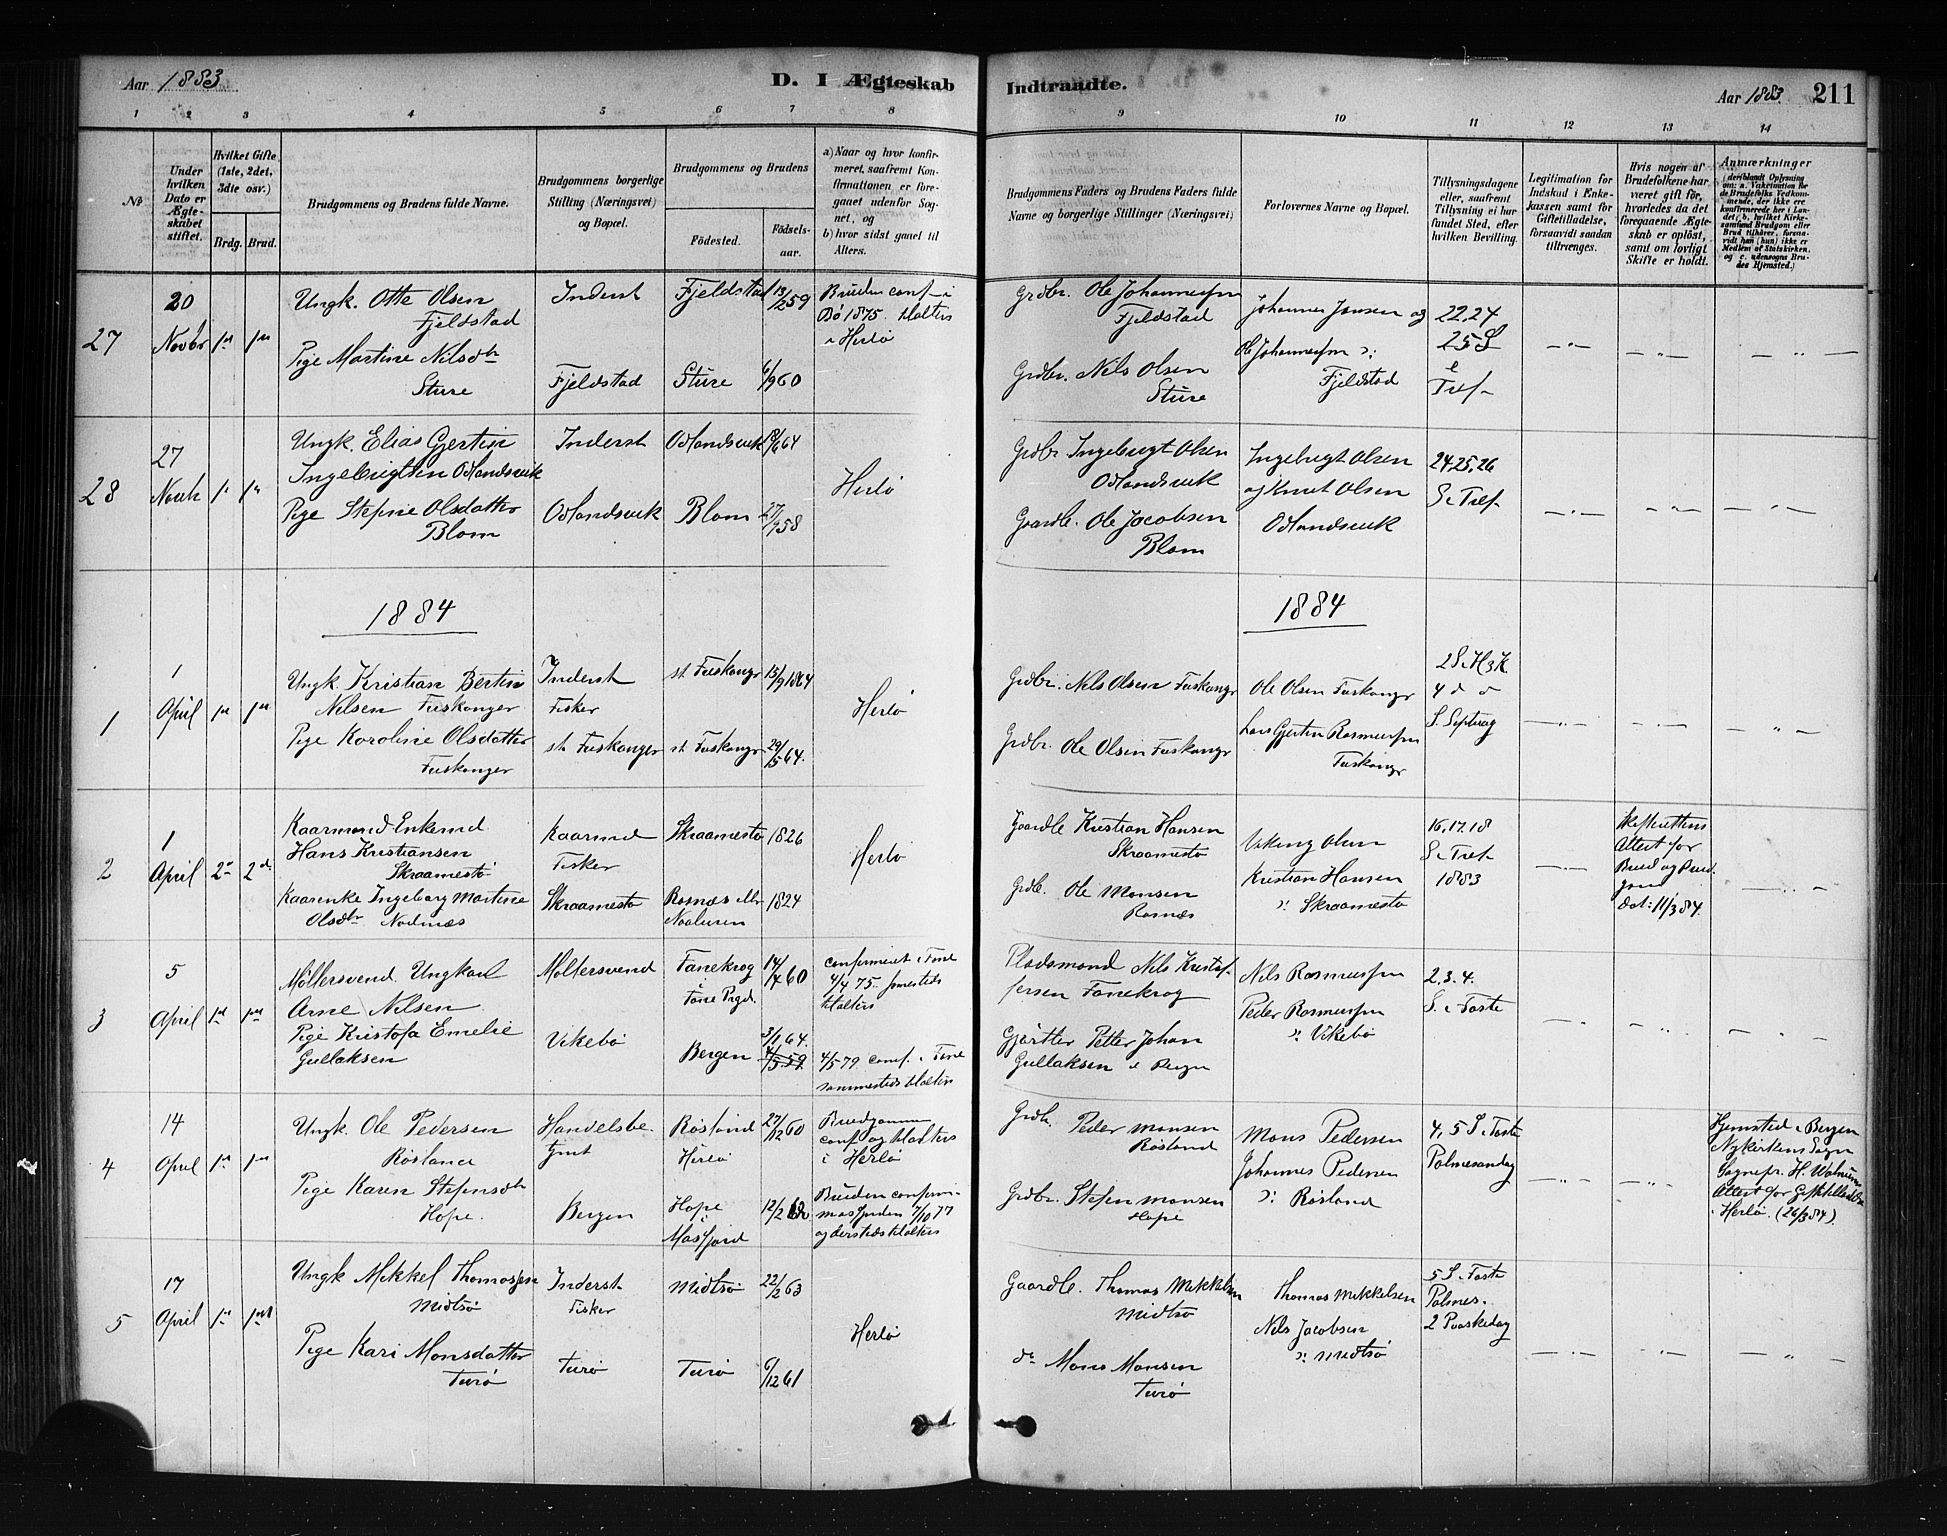 Aar 1883.
D. I Ægteskab
Indtraadte.
Aar 1883. 211
1 2 3 4 5 6 7 8 9 10 11 12 13 14
No
Under hvilken Dato er Ægteskabet stiftet.
Hvilket Gifte (1ste, 2det, 3die osv.)
Brdg. Brud.
Brudgommens og Brudens fulde Navne.
Brudgommens borgerlige Stilling (Næringsvei) og Bopæl.
Brudgommens og Brudens
Fødested.
Fødselsaar.
a) Naar og hvor konfirmeret, saafremt Konfirmationen er foregaaet udenfor Sognet, og
b) hvor sidst gaaet til Alters.
Brudgommens Faders og Brudens Faders fulde Navne og borgerlige Stillinger (Næringsvei)
Forlovernes Navne og Bopæl.
Tillysningsdagene eller, saafremt Tillysning ei har fundet Sted, efter hvilken Bevilling.
Legitimation for Indskud i Enkekassen samt for Giftetilladelse, forsaavidt saadan tiltrænges.
Hvis nogen af Brudefolkene har været gift før, hvorledes da det foregaaende Ægteskab er opløst, samt om lovligt Skifte er holdt.
Anmærkninger
27
20 Novbr
Ungk. Otte Olsen
Fjeldstad
Pige Martine Nilsdtr
Sture
Inderst
Fjeldstad
Fjeldstad
Sture
13/2 59
6/9 60
Bruden conf. i
Bø 1875. til alters
i Herlø
Grdbr. Ole Johannessen
Fjeldstad
Grdbr. Nils Olsen
Sture
Johannes Jonsen og
Ole Johannessen
Fjeldstad
22.24
25 S
e
Tref-
28
27
Ungk. Elias Gjertin
Ingebrigtsen Odlandsvik
Pige Stefine Olsdatter
Blom
Inderst
Odlandsvik
Odlandsvik
Blom
27/9 58
Herlø
Grdbr. Ingebrigt Olsen
Odlandsvik
Gaardbr. Ole Jacobsen
Blom
Ingebrigt Olsen
og Knut Olsen
Odlandsvik
24.25.26
S. e Tref
1884
1884
1
1 April
Ungk. Kristian Bertin
Nilsen Fuskanger
Pige Karoline Olsdatter
Fuskanger
Inderst
Fisker
st. Fuskanger
st. Fuskangr
st. Fuskangr
15/9 1864
29/5 64.
Herlø
Grdbr. Nils Olsen Fuskangr
Grdbr. Ole Olsen Fuskangr
Ole Olsen Fuskangr
Lars Gjertin Rasmussen
Fuskangr
S. Septuag
2
1 April
Kaarmand Enkemd
Hans Kristiansen
Skraamestø
Kaarenke Ingeborg Martine
Olsdtr Nodnæs
Kaarmd
Fisker
Skraamestø
Skraamestø
Rosnæs
1826
1824
Herlø
Gaardbr Kristian Hansen
Skraamestø
Grdb. Ole Monsen
Rosnæs
Viking Olsen
Kristian Hansen
Skraamestø
16.17.18
S. e Tref
1883
Skifterettens
Attest for
Brud og Brud-
gom
dat: 11/3 84.
3
5 April
Møllersvend Ungkarl
Arne Nilsen
Pige Kristofa Emelie
Gullaksen
Møllersvend
Vikebø
Fanekrog
Bergen
14/7 60
3/1 64.
confirmeret i
4/4 75.
til alters
4/5 79 conf. i
sammesteds til alters
Pladsmand Nils Kristof-
fersen Fanekrog
Gjørtler Petter Johan
Gullaksen i Bergen
Nils Rasmussen
Peder Rasmussen
Vikebø
2.3.4.
S. i Faste
4
14 April
Ungk. Ole Pedersen
Røsland
Pige Karen Stefensdtr
Hope.
Handelsbe-
tjent
Bergen
Røsland
Herlø
Hope
Masfjord
27/12 60
Brudgommen
conf og til alters
i Herlø
Bruden confirm i
Masfjorden 7/10 77
og dersteds til alters
Grdbr. Peder Monsen
Røsland
Grdbr. Stefen Monsen
Hope
Mons Pedersen
Johannes Pedersen
Røsland
4, 5 S. i Faste
Palmesøndag
Hjemsted i Bergen
Nykirkens Sogn
Sognepr. H. Walnum
Attest for Giftetilladelse
i Herlø. (26/3 84).
5
17 April
Ungk Mikkel Thomassen
Midtsø
Pige Kari Monsdatter
Turø
Inderst
Fisker
Turø
Midtsø
Turø
22/2 63
6/12 61
Herlø
Gaardbr. Thomas Mikkelsen
Midtsø
do Mons Monsen
Turø
Thomas Mikkelsen
Nils Jacobsen
Midtsø
5 S. i Faste
Palmes.
2 Paaskedag